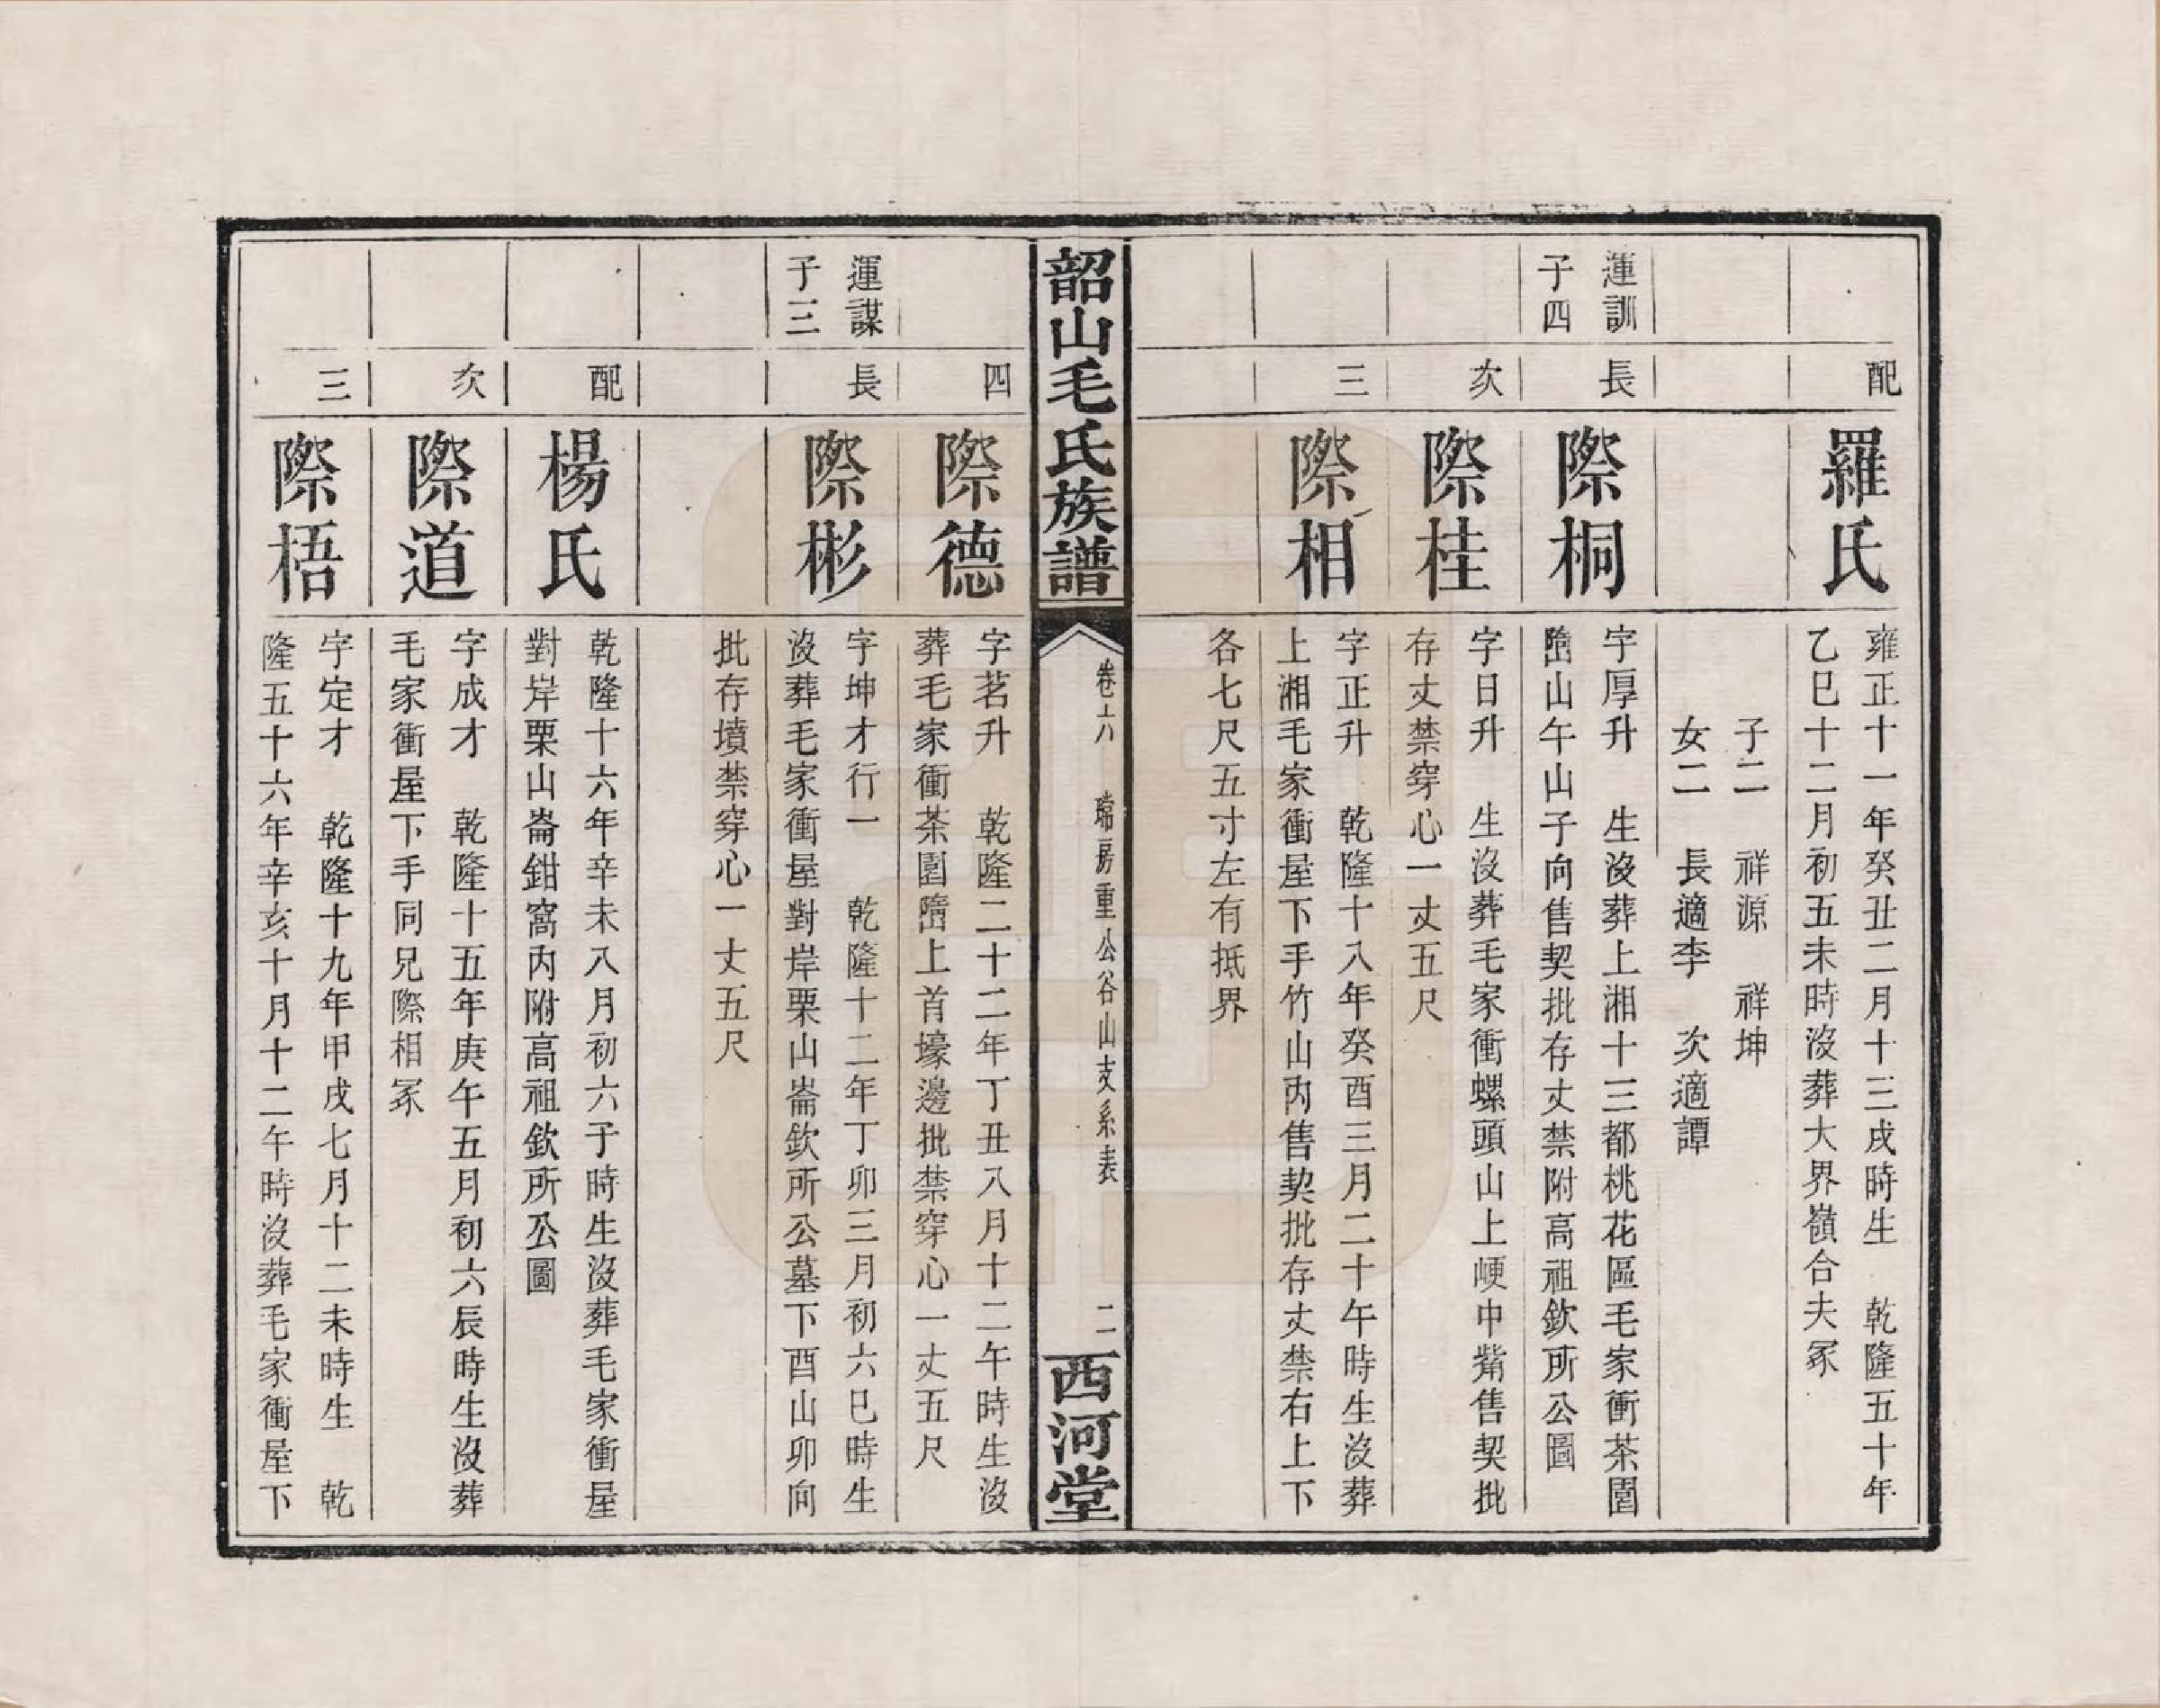 配
羅氏
雍正十一年癸丑二月十三戌時生　乾隆五十年
乙巳十二月初五未時沒葬大界嶺合夫冢
子二　祥源　祥坤
女二　長適李　次適譚
運訓
子四
長
際桐
字厚升　生沒葬上湘十三都桃花區毛家衝茶園
山午山子向售契批存丈禁附高祖欽所公圖
次
際桂
字日升　生沒葬毛家衝螺頭山上峺中觜售契批
存丈禁穿心一丈五尺
三
際相
字正升　乾隆十八年癸酉三月二十午時生沒葬
上湘毛家衝屋下手竹山內售契批存丈禁右上下
各七尺五寸左有抵界
韶山毛氏族譜
卷十八　瑞房重公谷山支系表　二
西河堂
四
際德
字茗升　乾隆二十二年丁丑八月十二午時生沒
葬毛家衝茶園上首壕邊批禁穿心一丈五尺
運謀
子三
長
際彬
字坤才行一　乾隆十二年丁卯三月初六巳時生
沒葬毛家衝屋對岸栗山崙欽所公墓下酉山卯向
批存墳禁穿心一丈五尺
配
楊氏
乾隆十六年辛未八月初六子時生沒葬毛家衝屋
對岸栗山崙鉗窩內附高祖欽所公圖
次
際道
字成才　乾隆十五年庚午五月初六辰時生沒葬
毛家衝屋下手同兄際相冢
三
際梧
字定才　乾隆十九年甲戌七月十二未時生　乾
隆五十六年辛亥十月十二午時沒葬毛家衝屋下